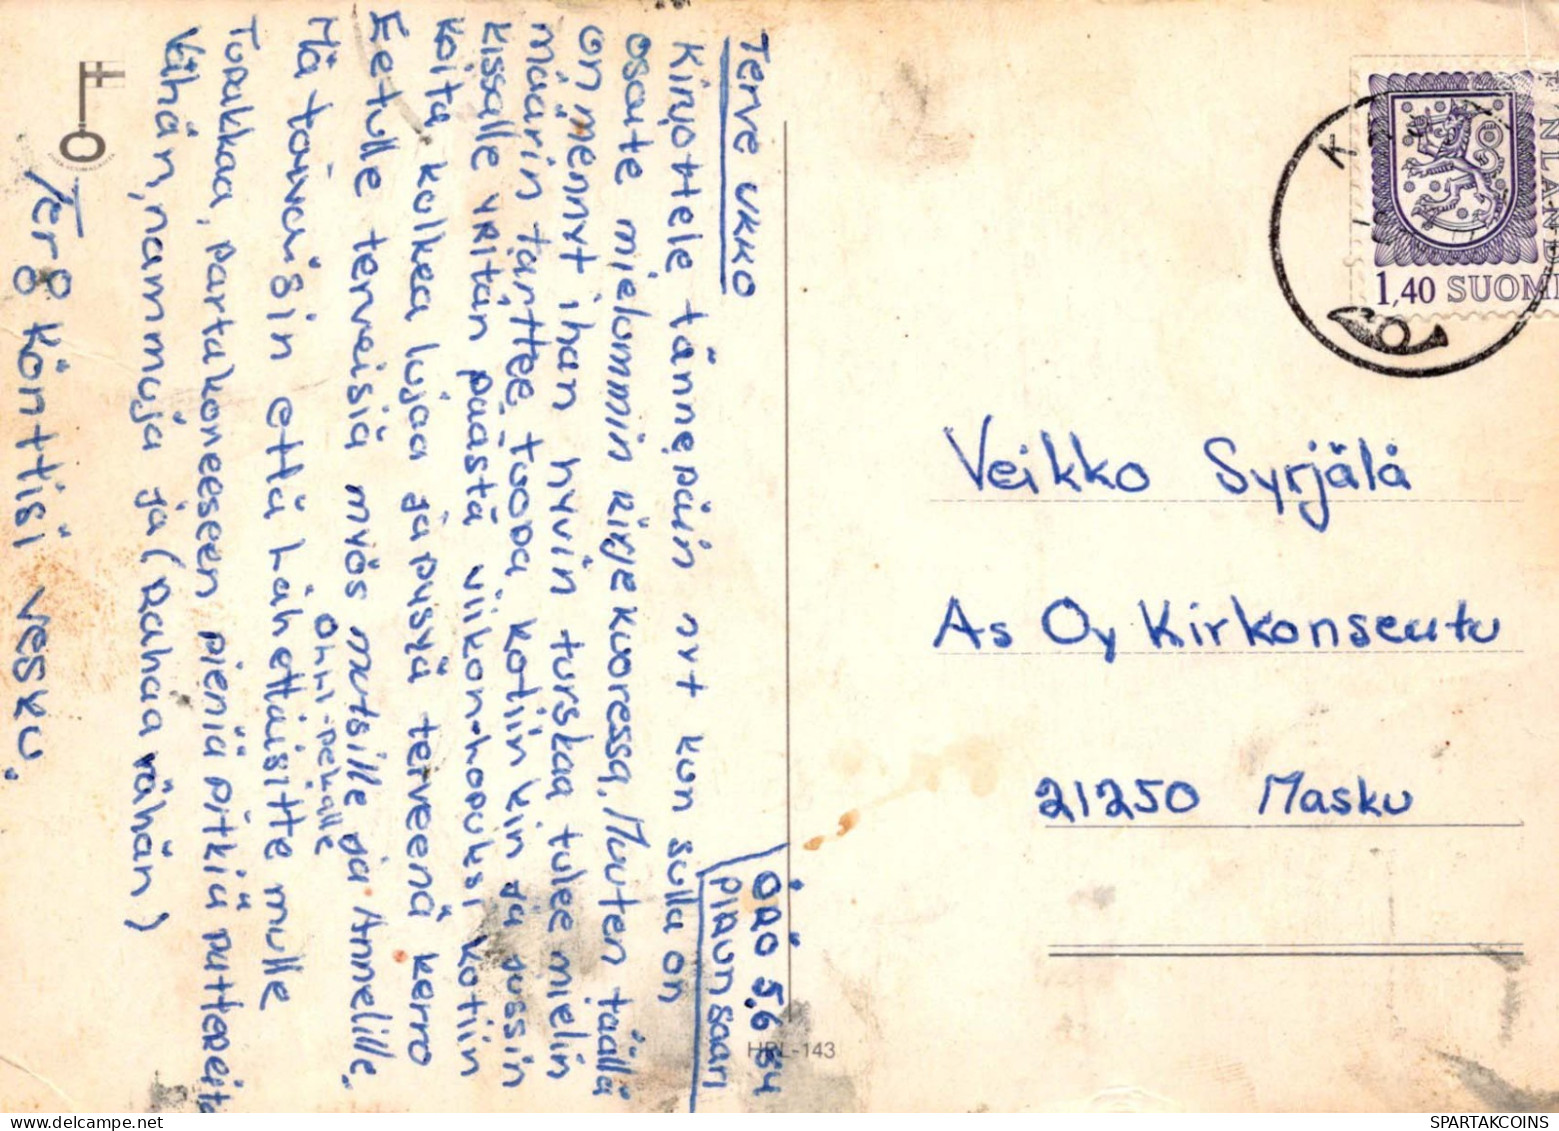 ÖRÖ 5.6 84
PIRUNSAARI
Terve ukko
Kirjottele tännepäin nyt kun sulla on
osote mielummin kirjekuoressa, Muuten täällä
on mennyt ihan hyvin turskaa tulee mielin
määrin tarttee tuopa kotiin kin ja jussin
kissalle yritän päästä viikon-hopuksi kotiin
koita kolkea lujaa ja pusyä terveenä kerro
Eetulle terveisiä myös mutsille ja Annelille.
Ohri-pekalle
Mä toivoisin että lähettäisitte mulle
Tupakkaa, partakoneeseen pieniä pitkiä pattereita
Vähän, nammuja ja (Rahaa vähän)
Terö Könttisi Vesku.
HPL-143
FINLAND
1,40 SUOMI
K
Veikko Syrjälä
As Oy Kirkonseutu
21250 Masku
SPARTAKCOINS